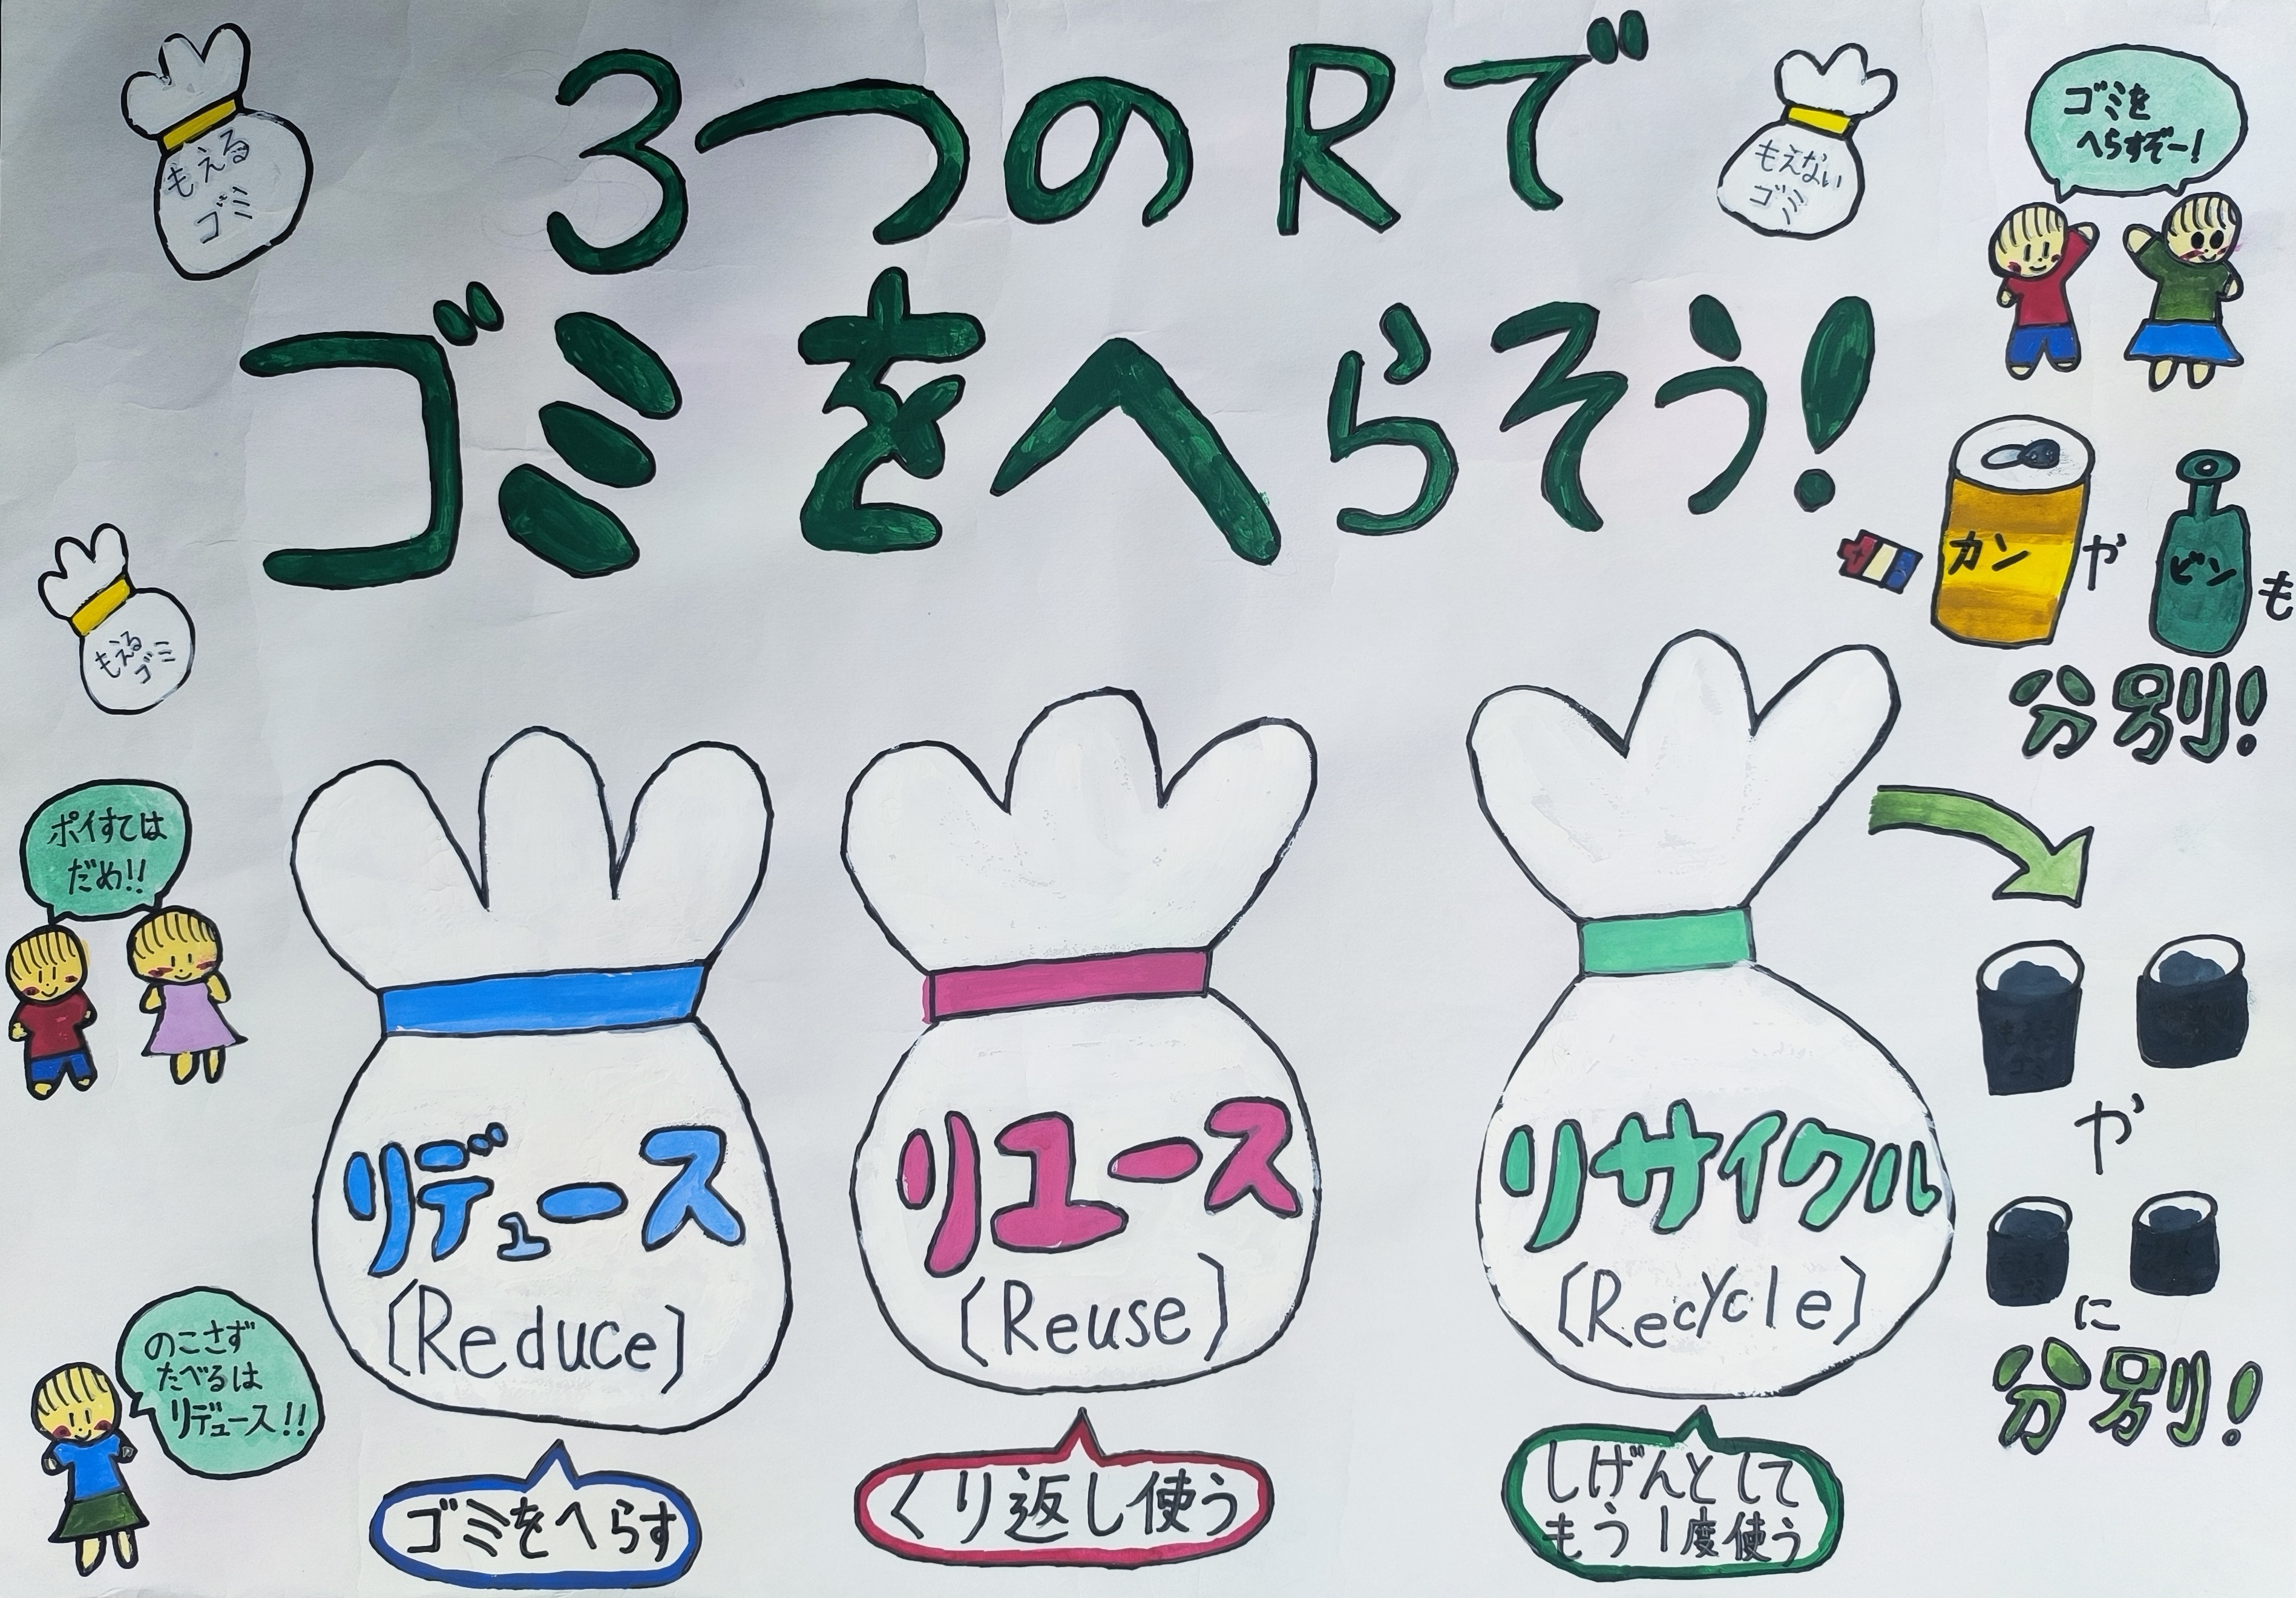 3つのRで
ゴミをへらそう!
もえる
ゴミ
もえない
ゴミ
ゴミを
へらすぞー!
もえる
ゴミ
カンやビンも
分別!
ポイすては
だめ!!
リデュース
[Reduce]
ゴミをへらす
リユース
[Reuse]
くり返し使う
リサイクル
[Recycle]
しげんとして
もう1度使う
のこさず
たべるは
リデュース!!
や
に
分別!